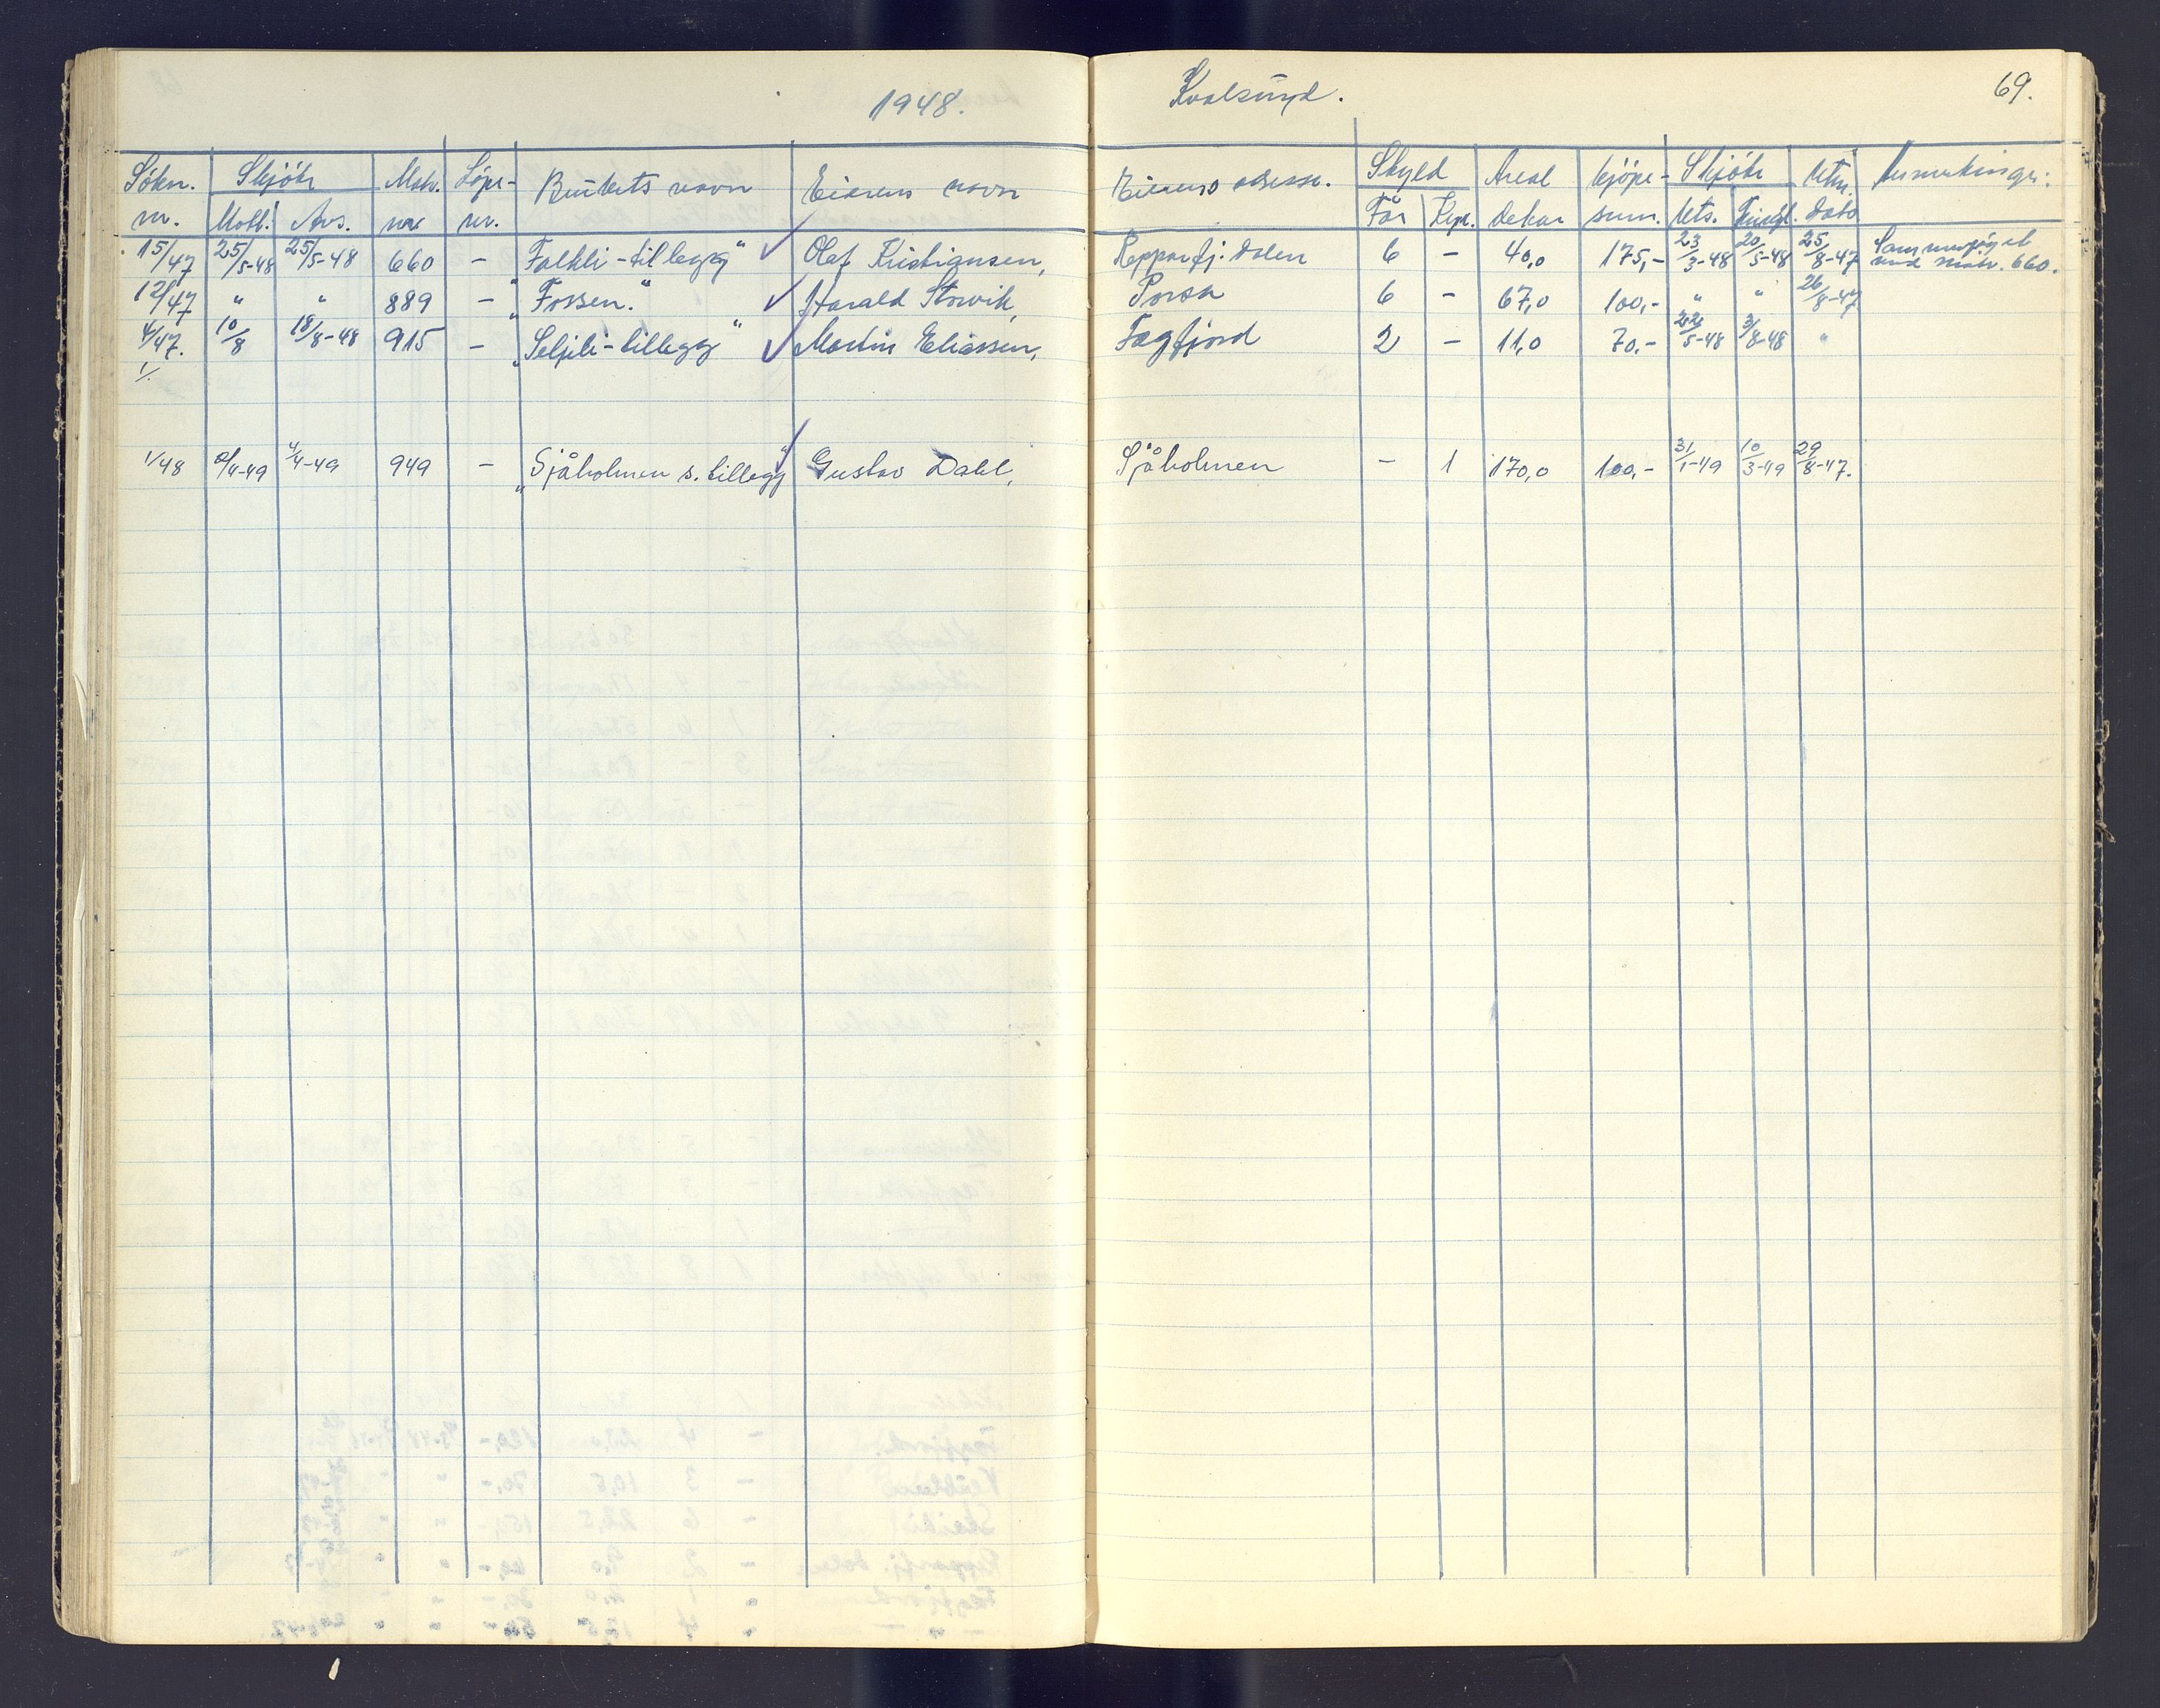 1948. Kvalsund. 69.
Søkn. Skjøte Matr. Löpe- Brukets navn Eierens navn Eierens adresse. Skyld Areal kjöpe- Skjøte Utm. Anmerkinger:
nr. Mott. Avs. nr. nr. Før Kpl. dekar sum. Uts. Tingl. dato
15/47 25/5-48 25/5-48 660 - "Falkli-tillegg" Olaf Kristiansen, Repparfj. dalen 6 - 40,0 175,- 23/3-48 20/5-48 25/8-47 Sammenföyet med matr. 660.
12/47 " " 889 - "Fossen." Harald Storvik, Porsa 6 - 67,0 100,- " " 26/8-47
4/47. 10/8 18/8-48 915 - "Seljeli-tillegg" Martin Eliassen, Fægfjord 2 - 11,0 70.- 22/5-48 3/8-48 "
1/.
1/48 4/4-49 949 - "Sjåholmen s. tillegg" Gustav Dahl, Sjåholmen - 1 170,0 100,- 31/1-49 10/3-49 29/8-47.